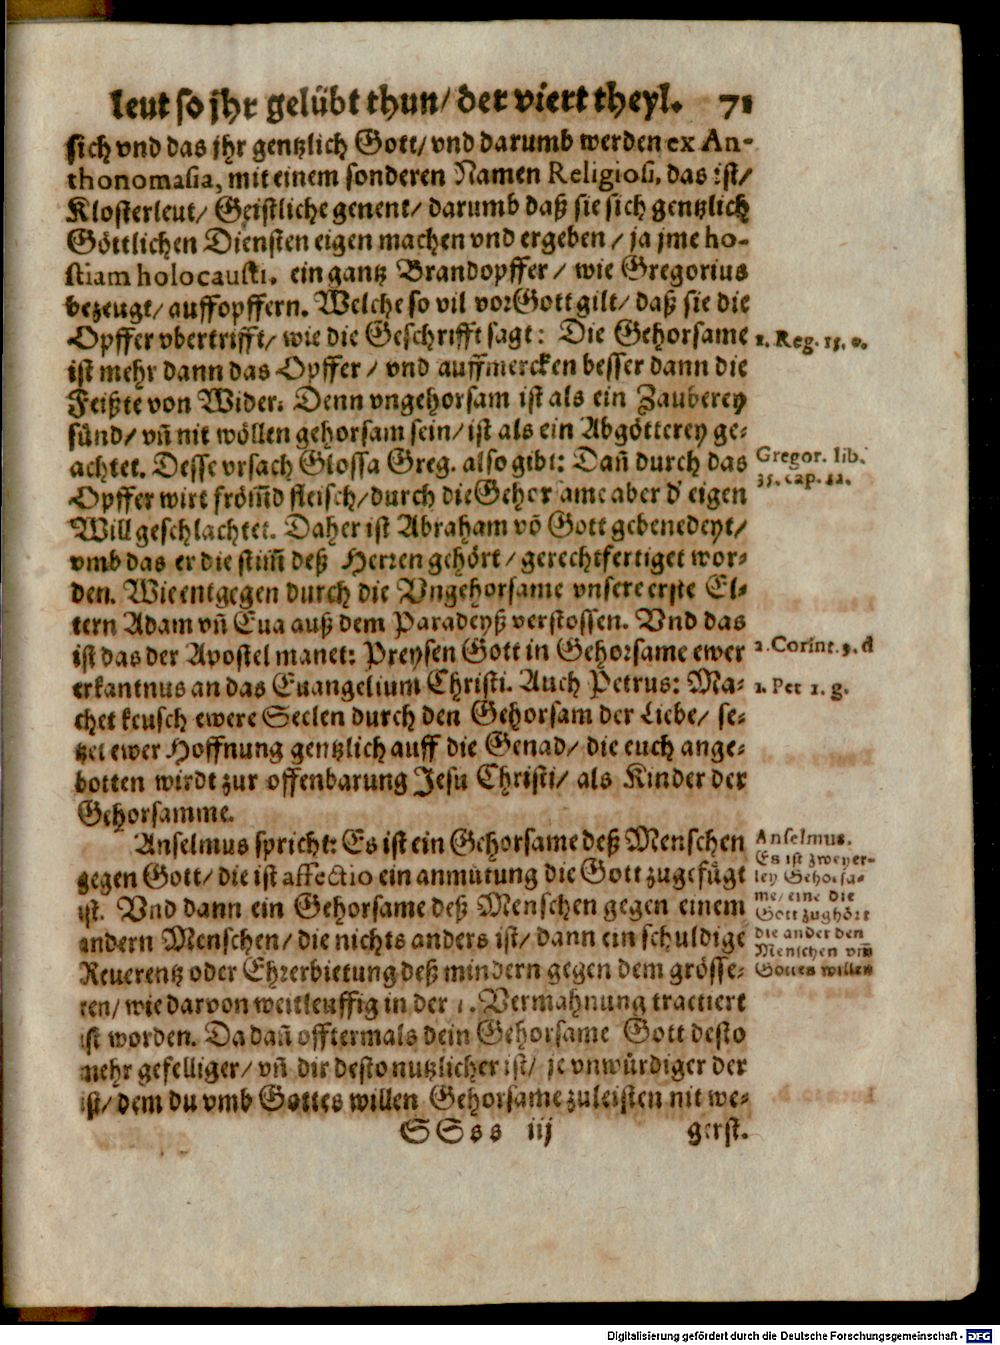 leut so jhr gelübt thun/ der viert theyl. 71
sich vnd das jhr gentzlich Gott/ vnd darumb werden ex An-
thonomasia, mit einem sonderen Namen Religiosi, das ist/
Klosterleut/ Geistliche genent/ darumb daß sie sich gentzlich
Göttlichen Diensten eigen machen vnd ergeben/ ja jme ho-
stiam holocausti, ein gantz Brandopffer/ wie Gregorius
bezeugt/ auffopffern. Welche so vil vor Gott gilt/ daß sie die
Opffer vbertrifft/ wie die Geschrifft sagt: Die Gehorsame
ist mehr dann das Opffer/ vnd auffmercken besser dann die
Feißte von Wider. Denn vngehorsam ist als ein Zauberey
sünd/ vñ nit wöllen gehorsam sein/ ist als ein Abgötterey ge-
achtet. Desse vrsach Glossa Greg. also gibt: Dañ durch das
Opffer wirt frömd fleisch/ durch die Gehorsame aber d' eigen
Will geschlachtet. Daher ist Abraham võ Gott gebenedeyt/
vmb das er die stim̃ deß Herren gehört/ gerechtfertiget wor-
den. Wie entgegen durch die Vngehorsame vnsere erste El-
tern Adam vñ Eua auß dem Paradeyß verstossen. Vnd das
ist das der Apostel manet: Preysen Gott in Gehorsame ewer
erkantnus an das Euangelium Christi. Auch Petrus: Ma-
chet keusch ewere Seelen durch den Gehorsam der Liebe/ se-
tzet ewer Hoffnung gentzlich auff die Genad/ die euch ange-
botten wirdt zur offenbarung Jesu Christi/ als Kinder der
Gehorsamme.
Anselmus spricht: Es ist ein Gehorsame deß Menschen
gegen Gott/ die ist affectio ein anmütung die Gott zugefügt
ist. Vnd dann ein Gehorsame deß Menschen gegen einem
andern Menschen/ die nichts anders ist/ dann ein schuldige
Reuerentz oder Ehrerbietung deß mindern gegen dem grösse-
ren/ wie darvon weitleuffig in der 1. Vermahnung tractiert
ist worden. Da dañ offtermals dein Gehorsame Gott desto
mehr gefelliger/ vñ dir desto nutzlicher ist/ je vnwürdiger der
ist/ dem du vmb Gottes willen Gehorsame zuleisten nit we-
SSss iij gerst.
1. Reg. 15.
Gregor. lib.
35. cap.
2. Corint. 9. d
1. Pet 1. g.
Anselmus.
Es ist zweyer-
ley Gehorsa-
me/ eine die
Gott zughört
die ander den
Menschen vm̃
Gottes willen
Digitalisierung gefördert durch die Deutsche Forschungsgemeinschaft - DFG